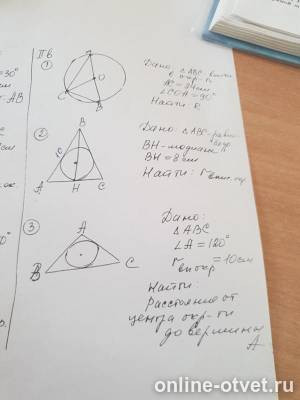 II в
①
A
O
C
B
Дано: △ABC
в окр-ти
AC = 24 см
∠COA = 90°
Найти: R
②
B
10
A
H
C
Дано: △ABC - равно
BH - медиана
BH = 8 см
Найти: r впис. окр.
③
A
B
C
Дано:
△ABC
∠A = 120°
r
= 10 см
Найти:
Расстояние от
центра окр-ти
до вершины
A
30°
AB
online-otvet.ru